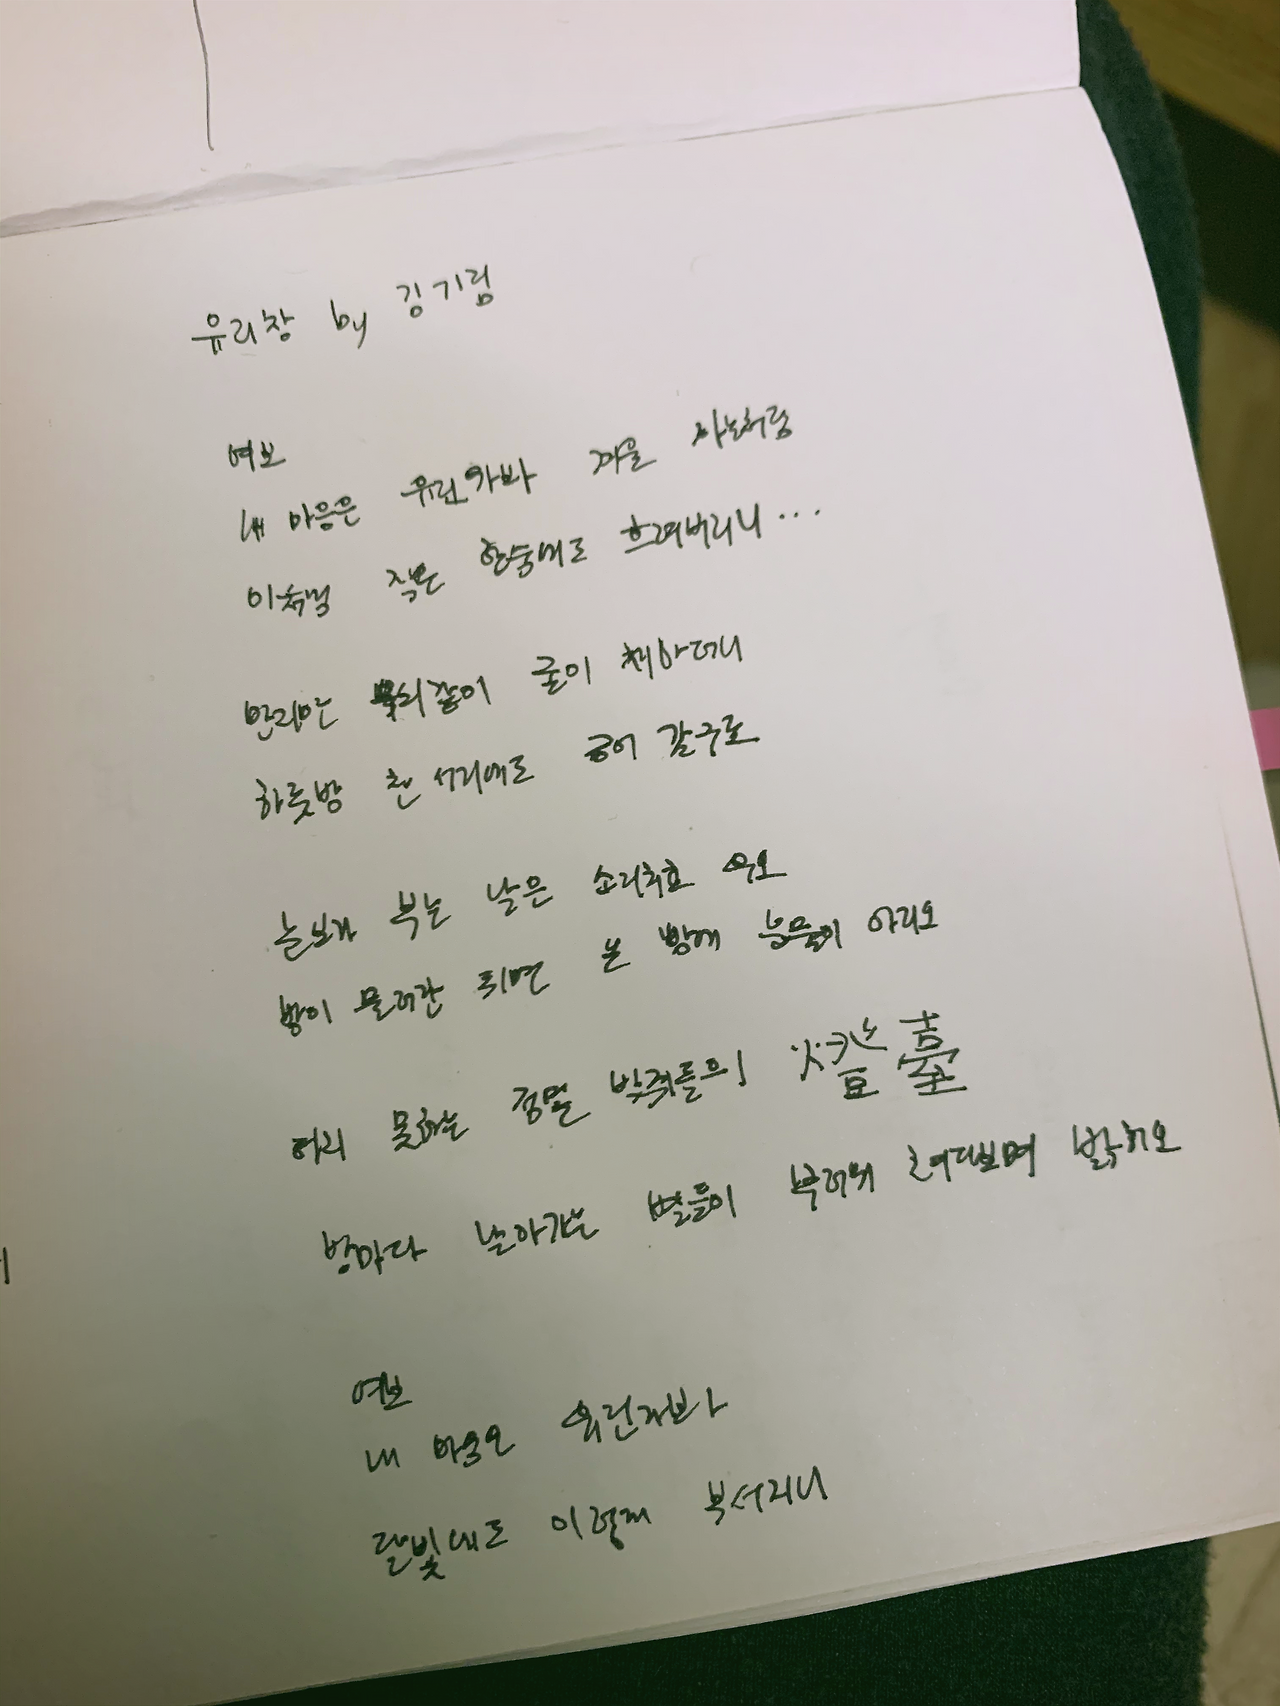 유리창 by 김기림
여보
내 마음은 유린가봐 겨울 하늘처럼
이처럼 작은 한숨에도 흐려버리니...
만지면 무쇠같이 굳이 체하더니
하룻밤 찬 서리에도 금이 갔구료
눈보라 부는 날은 소리치고 우오
밤이 물러간 뒤면 온 뺨에 눈물이 어리오
타지 못하는 정열 박쥐들의 燈臺
밤마다 날아가는 별들이 부러워 쳐다보며 밝히오
여보
내 마음은 유린가보아
달빛에도 이렇게 부서지니